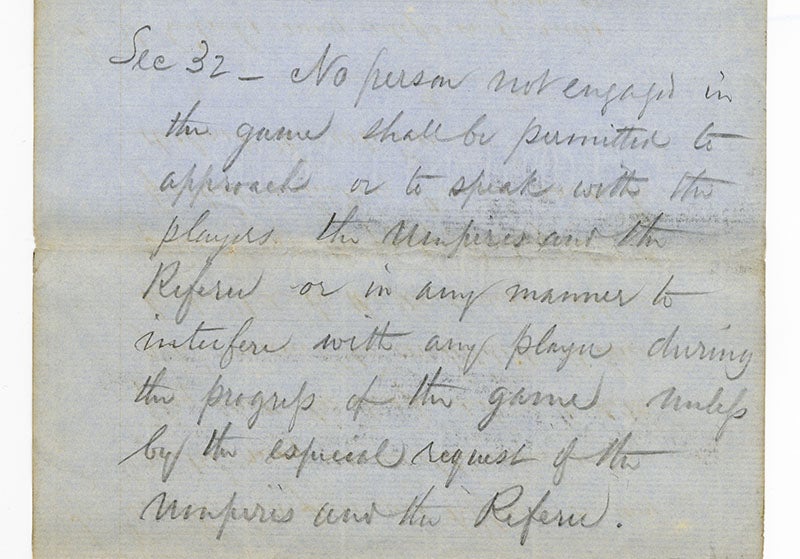 Sec 32 – No person not engaged in
the game shall be permitted to
approach or to speak with the
players the Umpires and the
Referee or in any manner to
interfere with any player during
the progress of the game unless
by the especial request of the
Umpires and the Referee.